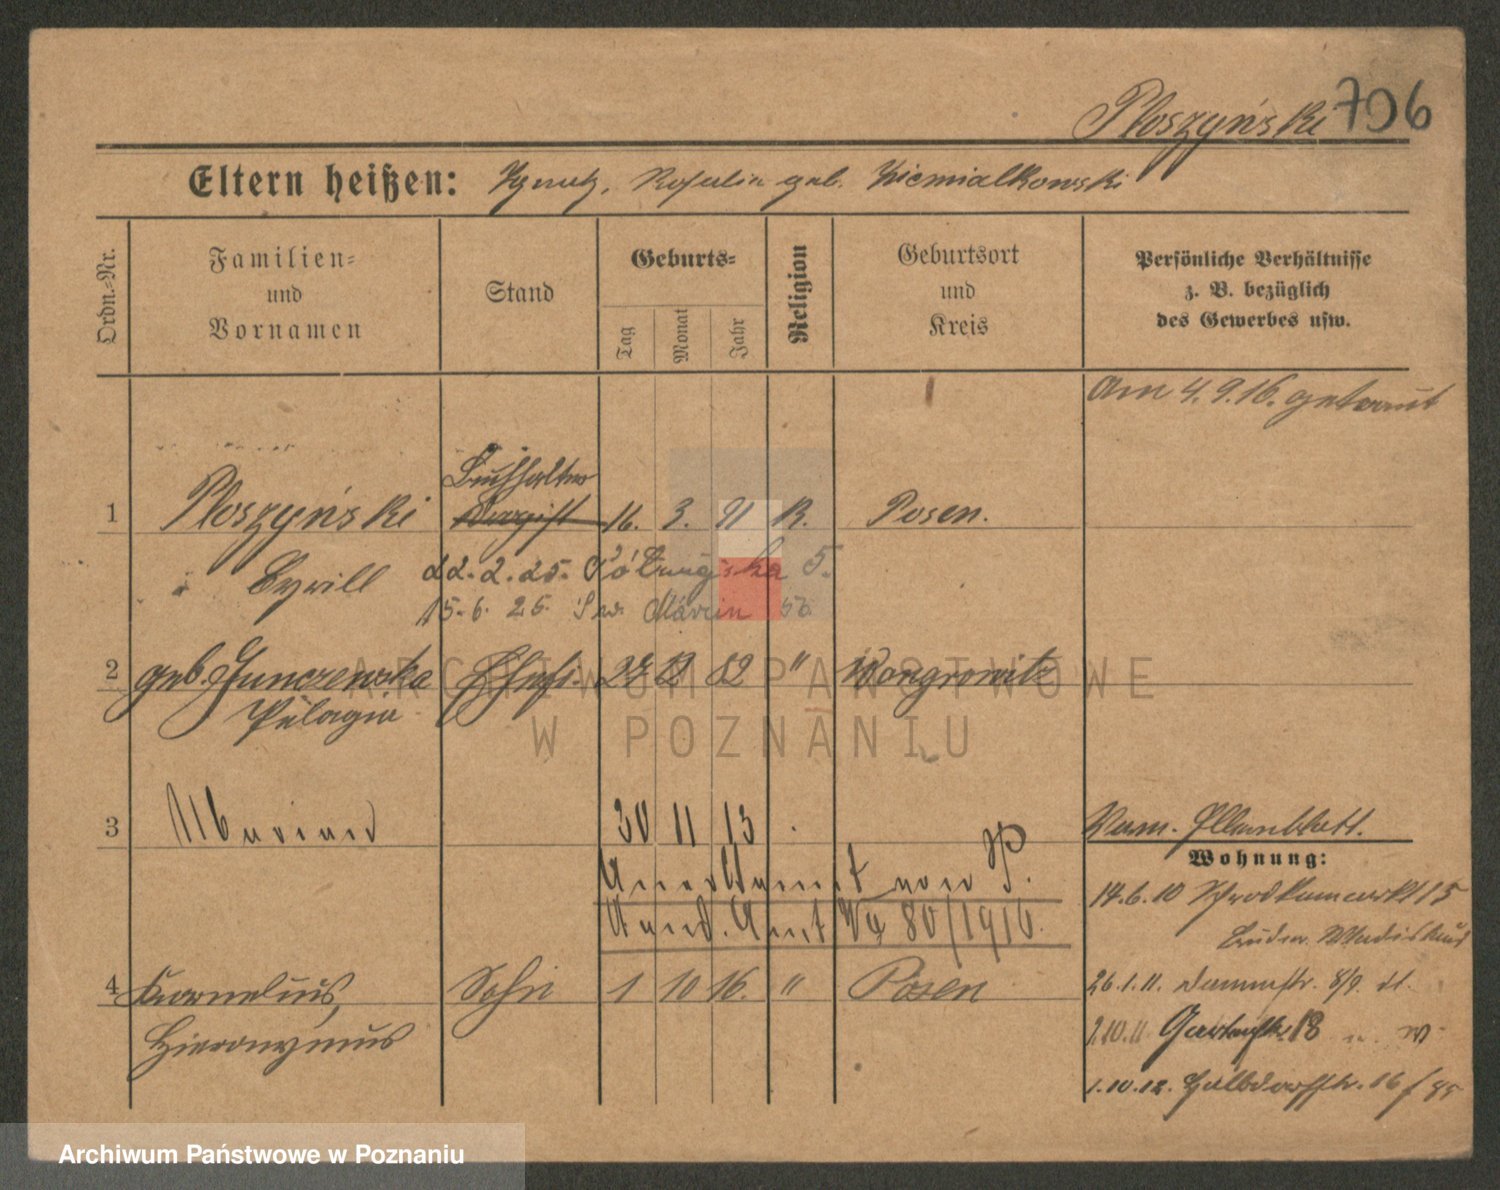 Ploszyński 706
Eltern heißen: Ignatz, Rosalie geb. Niemialkowski
Ordn.-Nr.
Familien-
und
Vornamen
Stand
Geburts-
Tag
Monat
Jahr
Religion
Geburtsort
und
Kreis
Persönliche Verhältnisse
z. B. bezüglich
des Gewerbes usw.
Am 4.9.16. getraut
Buchhalter
1 Ploszyński 16. 3. 91 K. Posen.
Cyrill 22.2.25. 5.
15.6.25. Św. Marcin
2 geb. Junczewska Ehefr. 82 " Wongrowitz
Pelagia
3 Marian 30 11 13
P.
Stand. Amt 80/1916.
Wohnung:
14.6.10
Bruder
4 Kornelius, Sohn 1 10 16. " Posen
Hieronymus
26.1.11. Dammstr. 8/9. II.
2.10.11 Gartenstr. 18
1.10.12. Halbdorfstr. 16
ARCHIWUM PAŃSTWOWE
W POZNANIU
Archiwum Państwowe w Poznaniu